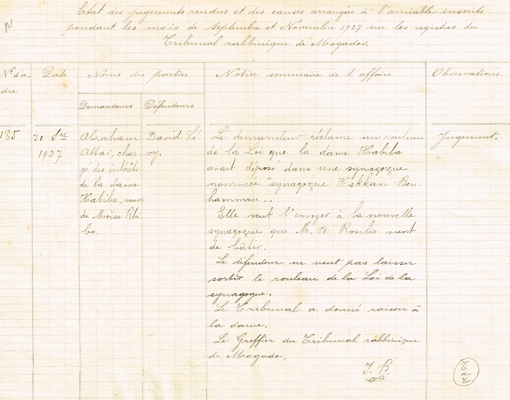 Etat des jugements rendus et des causes arrangées à l'amiable inscrits
pendant les mois de Septembre et Novembre 1927 sur les registres du
Tribunal rabbinique de Mogador.
N° d'or
dre
Date
Noms des parties
Notice sommaire de l'affaire
Observations
Demandeurs
Défendeurs
185
20 Sbre
1927
Abraham
Attar, char
gé des intérêts
de la dame
Habiba, veuve
de Moïse Rhi
bo.
David Lé
vy.
Le demandeur réclame un rouleau
de la Loi que la dame Habiba
avait déposé dans une synagogue
nommée "synagogue Hakkan Ben
hammou".
Elle veut l'envoyer à la nouvelle
synagogue que M. A. Rosilio vient
de bâtir.
Le défendeur ne veut pas laisser
sortir le rouleau de la Loi de la
synagogue.
Le Tribunal a donné raison à
la dame.
Le Greffier du Tribunal rabbinique
de Mogador,
J. B.
Jugement.